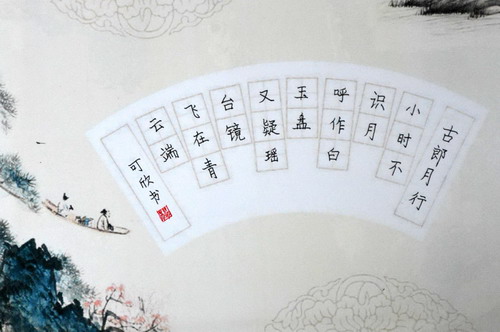 古郎月行
小时不
识月
呼作白
玉盘
又疑瑶
台镜
飞在青
云端
可欣书